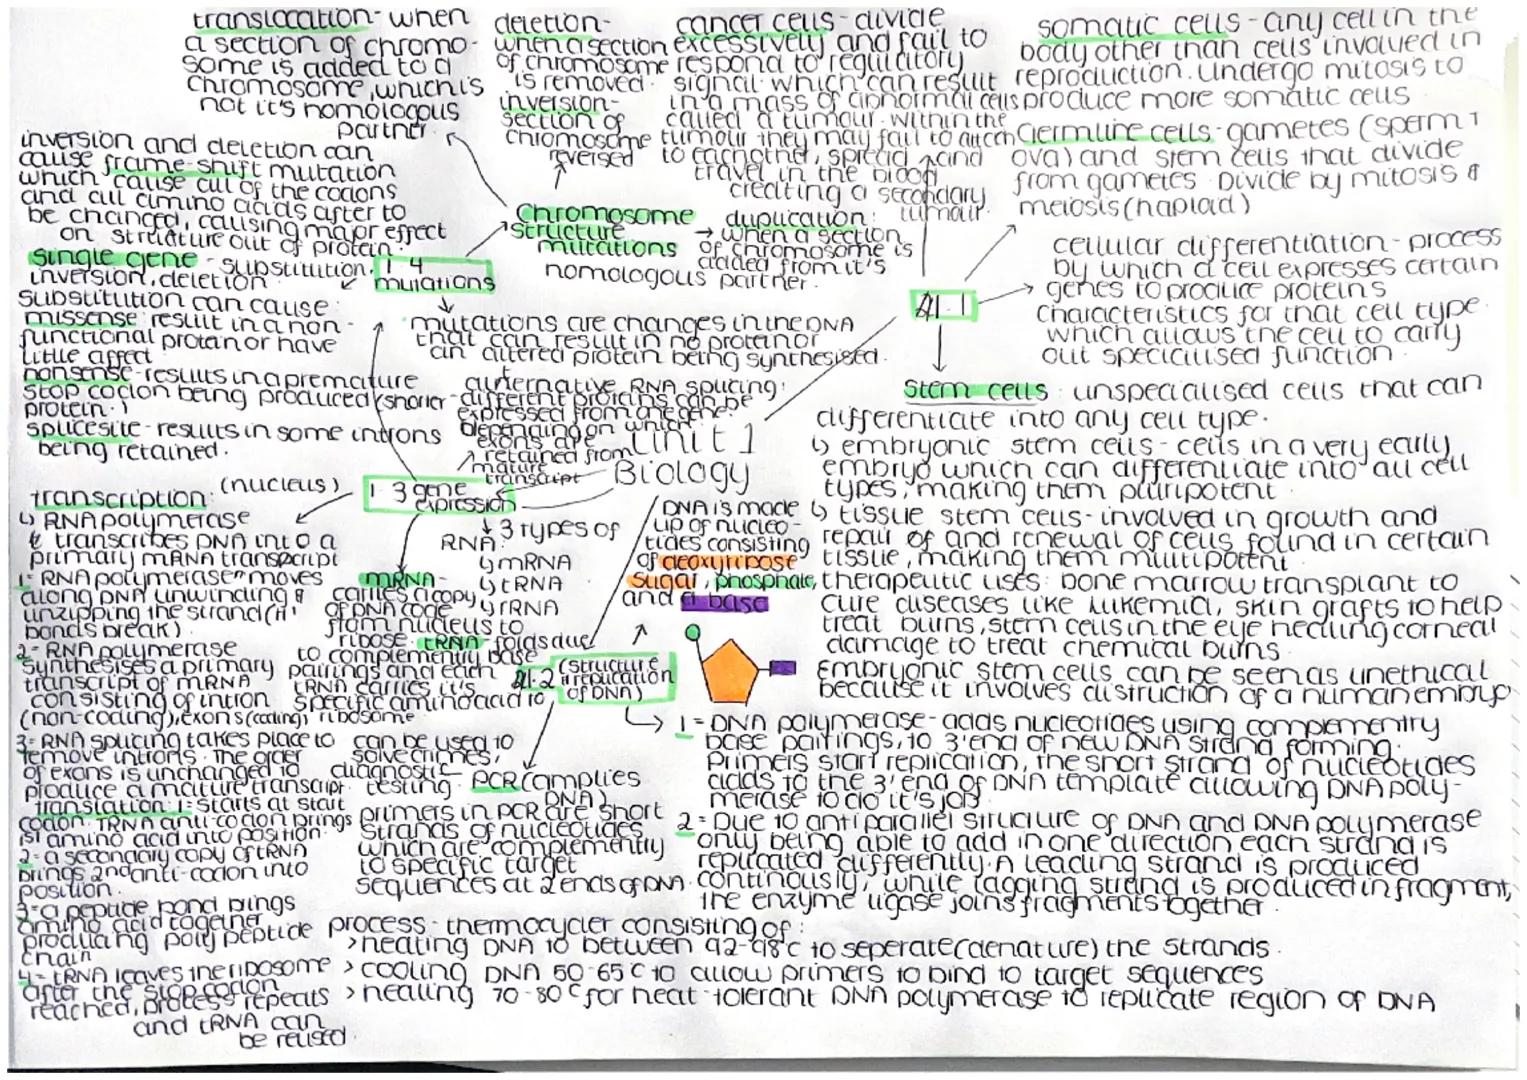 translocation- when
a section of chromo-
some is added to a
chromosome, which is
not it's homologous
partner.
deletion-
when a section
of chromosome
is removed.
inversion-
section of
chromosome
reversed
cancer cells - divide
excessively and fail to
respond to regulatory
signal which can result
in a mass of abnormal cells
called a tumour. within the
tumour they may fail to attach
to eachother, spread and
travel in the blood
creating a secondary
tumour.
somatic cells - any cell in the
body other than cells involved in
reproduction. undergo mitosis to
produce more somatic cells
Germline cells - gametes (sperm +
ova) and stem cells that divide
from gametes. Divide by mitosis &
meiosis (haploid)
inversion and deletion can
cause frame-shift mutation
which cause all of the codons
and all amino acids after to
be changed, causing major effect
on structure out of protein.
single gene - substitution,
inversion, deletion
substitution can cause:
missense: result in a non-
functional protein or have
little affect
nonsense- results in a premature
stop codon being produced (shorter
protein.)
splicesite - results in some introns
being retained.
1.4
mutations
Chromosome
structure
mutations
duplication:
when a section
of chromosome is
added from it's
homologous partner.
mutations are changes in the DNA
that can result in no protein or
an altered protein being synthesised.
1.1
cellular differentiation - process
by which a cell expresses certain
genes to produce proteins
characteristics for that cell type.
which allows the cell to carry
out specialised function.
Stem cells: unspecialised cells that can
differentiate into any cell type.
↳ embryonic stem cells - cells in a very early
embryo which can differentiate into all cell
types, making them pluripotent
↳ tissue stem cells - involved in growth and
repair of and renewal of cells found in certain
tissue, making them multipotent
therapeutic uses: bone marrow transplant to
cure diseases like lukemia, skin grafts to help
treat burns, stem cells in the eye healing corneal
damage to treat chemical burns
Embryonic stem cells can be seen as unethical
because it involves distruction of a human embryo
alternative RNA splicing:
different proteins can be
expressed from one gene.
depending on which
exons are
retained from
mature
transcript
Unit 1
Biology
1.3 gene
expression
transcription: (nucleus)
↳ RNA polymerase
transcribes DNA into a
primary mRNA transpcript
1= RNA polymerase moves
along DNA unwinding &
unzipping the strand (H
bonds break)
2= RNA polymerase
synthesises a primary
transcript of mRNA
consisting of intron
(non-coding), exons (coding)
3= RNA splicing takes place to
remove introns. The order
of exons is unchanged to
produce a mature transcript.
translation: 1= starts at start
codon. TRNA anti-codon brings
1st amino acid into position.
2= a secondary copy of tRNA
brings 2nd anti-codon into
position.
3= a peptide bond brings
amino acid together
producing poly peptide
chain
4= tRNA leaves the ribosome
after the stop codon
reached, process repeats
and tRNA can
be reused.
3 types of
RNA:
↳ mRNA
↳ tRNA
↳ rRNA
mRNA-
carries a copy
of DNA code
from nucleus to
ribose. tRNA- folds due
to complementry base
pairings and each
tRNA carries it's
specific amino acid to
ribosome
DNA is made
up of nucleo-
tides consisting
of deoxyribose
sugar, phosphate,
and a base
1.2 (structure
replication
of DNA)
can be used to
solve crimes,
diagnostic
testing.
PCR (amplies
DNA)
primers in PCR are short
strands of nucleotides
which are complementry
to specific target
sequences at 2 ends of DNA.
1= DNA polymerase - adds nucleotides using complementry
base pairings, to 3'end of new DNA strand forming.
Primers start replication, the short strand of nucleotides
adds to the 3'end of DNA template allowing DNA poly-
merase to do it's job
2= Due to antiparallel structure of DNA and DNA polymerase
only being able to add in one direction each strand is
replicated differently. A leading strand is produced
continously, while lagging strand is produced in fragment,
the enzyme ligase joins fragments together.
process - thermocycler consisting of:
>heating DNA to between 92-98°c to seperate (denature) the strands.
>cooling DNA 50-65°c to allow primers to bind to target sequences
>heating 70-80°c for heat-tolerant DNA polymerase to replicate region of DNA